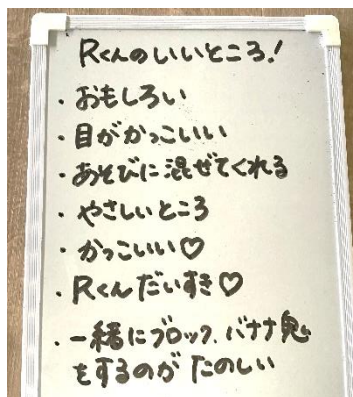 Rくんのいいところ!
・おもしろい
・目がかっこいい
・あそびに混ぜてくれる
・やさしいところ
・かっこいい♡
・Rくんだいすき♡
・一緒にブロック、バナナ鬼
をするのが たのしい